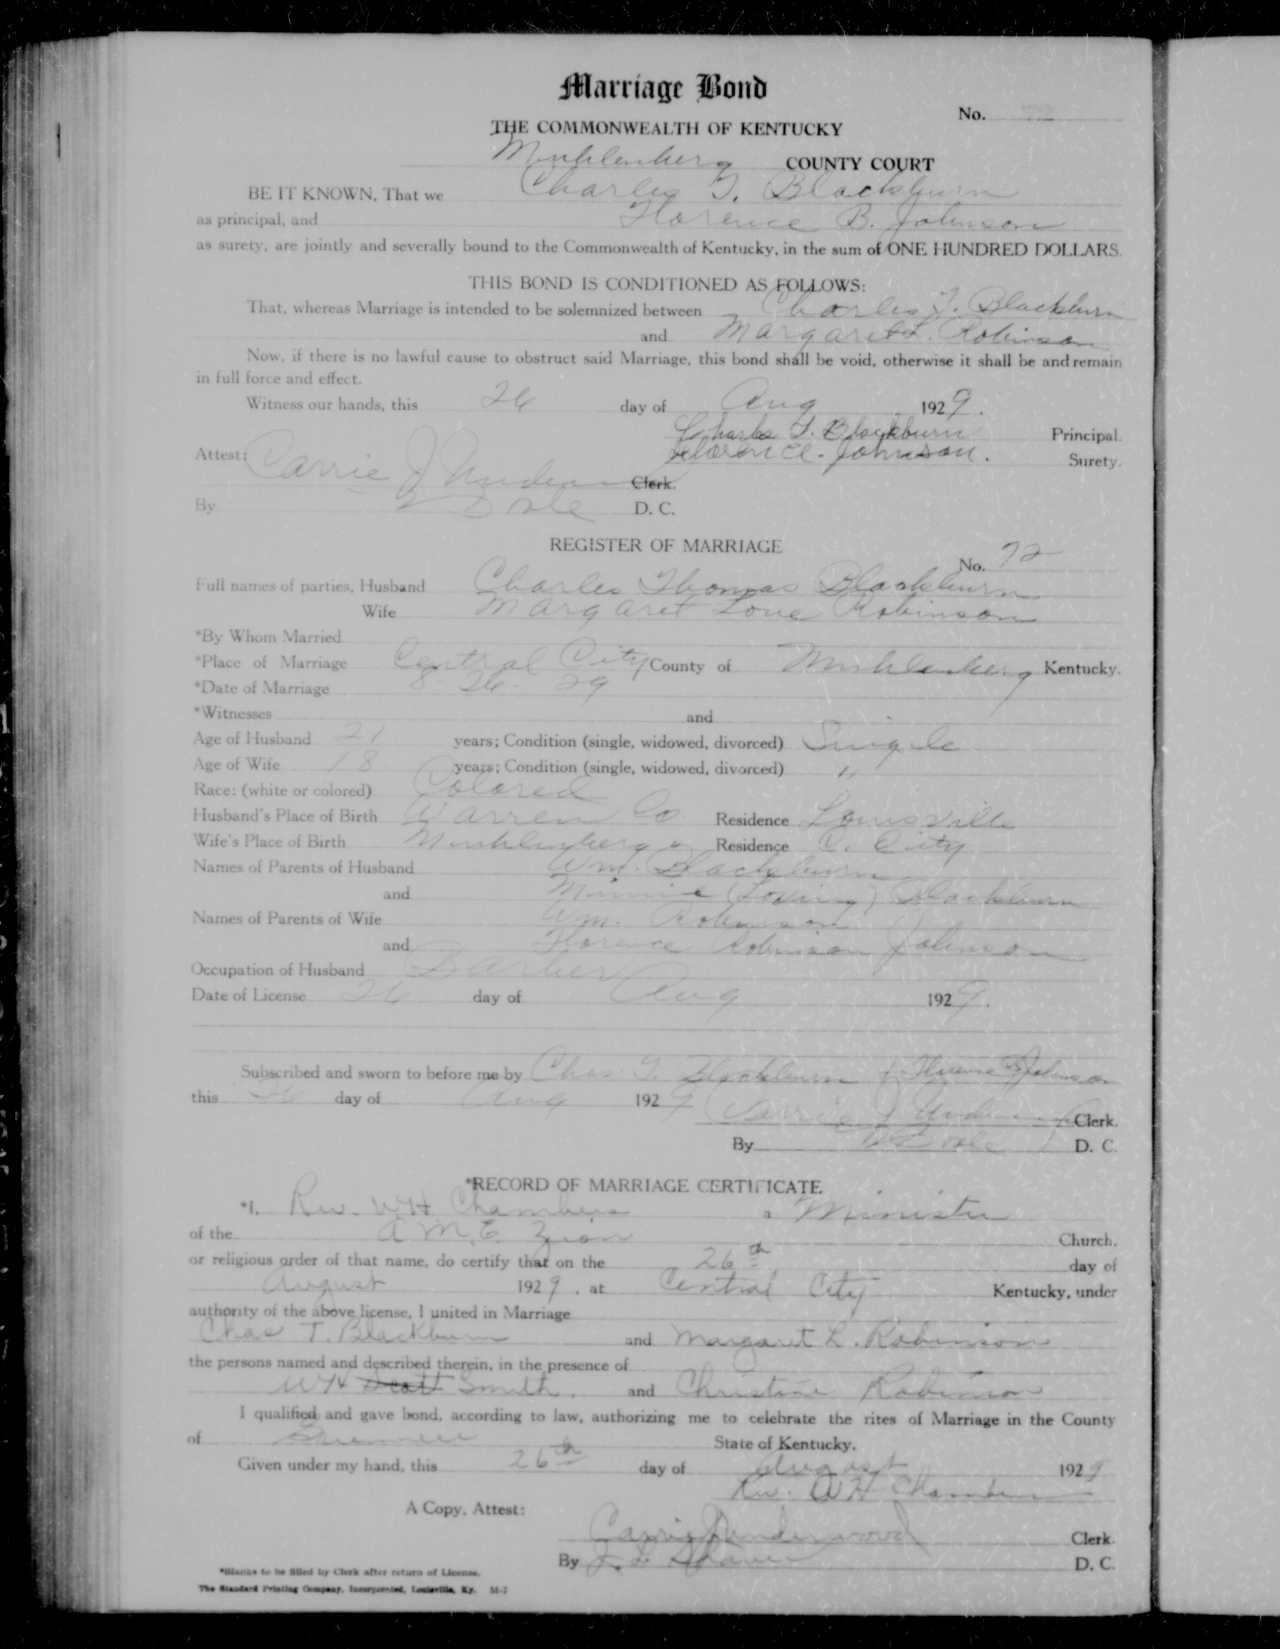 Marriage Bond
No. 72
THE COMMONWEALTH OF KENTUCKY
Muhlenberg COUNTY COURT
BE IT KNOWN, That we Charles T. Blackburn
as principal, and Florence B. Johnson
as surety, are jointly and severally bound to the Commonwealth of Kentucky, in the sum of ONE HUNDRED DOLLARS.
THIS BOND IS CONDITIONED AS FOLLOWS:
That, whereas Marriage is intended to be solemnized between Charles T. Blackburn
and Margaret L. Robinson
Now, if there is no lawful cause to obstruct said Marriage, this bond shall be void, otherwise it shall be and remain
in full force and effect.
Witness our hands, this 26 day of Aug 1929.
Charles T. Blackburn Principal.
Florence. Johnson. Surety.
Attest: Carrie J Underwood Clerk.
By Dole D. C.
REGISTER OF MARRIAGE
No. 72
Full names of parties, Husband Charles Thomas Blackburn
Wife Margaret Love Robinson
*By Whom Married
*Place of Marriage Central City County of Muhlenberg Kentucky.
*Date of Marriage 8-26-29
*Witnesses and
Age of Husband 21 years; Condition (single, widowed, divorced) Single
Age of Wife 18 years; Condition (single, widowed, divorced) "
Race: (white or colored) Colored
Husband's Place of Birth Warren Co Residence Louisville
Wife's Place of Birth Muhlenberg " Residence C. City
Names of Parents of Husband Wm. Blackburn
and Minnie (Loving) Blackburn
Names of Parents of Wife Wm. Robinson
and Florence Robinson Johnson
Occupation of Husband Barber
Date of License 26 day of Aug 1929.
Subscribed and sworn to before me by Chas. T. Blackburn & Florence B Johnson
this 26 day of Aug 1929 Carrie J Underwood Clerk.
By Dole D. C.
*RECORD OF MARRIAGE CERTIFICATE
*I, Rev. WH Chambers a Minister
of the A M. E. Zion Church,
or religious order of that name, do certify that on the 26th day of
August 1929, at Central City Kentucky, under
authority of the above license, I united in Marriage
Chas T. Blackburn and Margaret L. Robinson
the persons named and described therein, in the presence of
WH Scott Smith. and Christine Robinson
I qualified and gave bond, according to law, authorizing me to celebrate the rites of Marriage in the County
of State of Kentucky.
Given under my hand, this 26th day of August 1929
Rev. WH Chambers
A Copy, Attest:
Carrie J Underwood Clerk.
By D. C.
*Blanks to be filled by Clerk after return of License.
The Standard Printing Company, Incorporated, Louisville, Ky. M-7